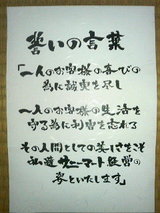 誓いの言葉
「一人のお客様の喜びの
為に誠実を尽し
一人のお客様の生活を
守る為に利害を忘れる
その人間としての美しさをこそ
私達 マート経営の
姿といたします」